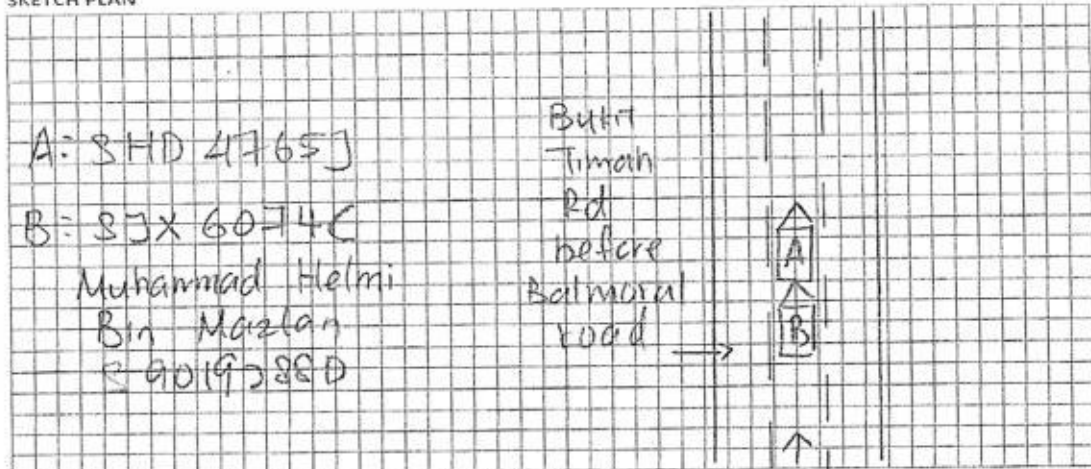 SKETCH PLAN
A: SHD 4765J
B: SJX 6074C
Muhammad Helmi
Bin Mazlan
Bukit
Timah
Rd
before
Balmoral
road
A
B